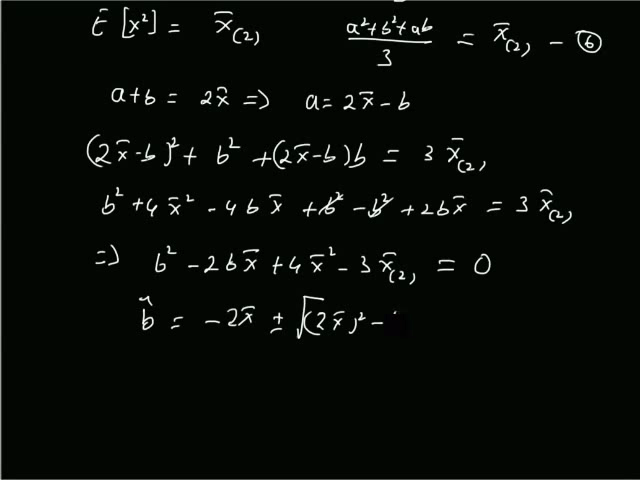 E[x²] = x̄₍₂₎    (a²+b²+ab)/3 = x̄₍₂₎ – ⑥
a+b = 2x̄ => a = 2x̄ – b
(2x̄–b)² + b² + (2x̄–b)b = 3 x̄₍₂₎
b² + 4x̄² – 4bx̄ + b² – b² + 2bx̄ = 3 x̄₍₂₎
=> b² – 2bx̄ + 4x̄² – 3x̄₍₂₎ = 0
b̂ = –2x̄ ± √(2x̄)² –